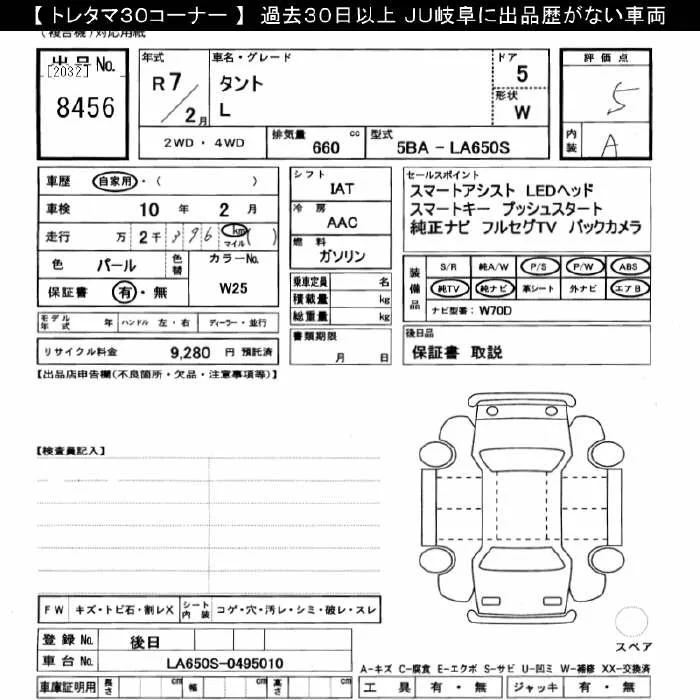 【 トレタマ30コーナー 】 過去30日以上 JU岐阜に出品歴がない車両
(複合機)対応用紙
出品No.
[2032]
8456
年式
R7/2月
車名・グレード
タント
L
ドア
5
形状
W
評価点
5
内装
A
2WD・4WD
排気量 660 cc
型式 5BA - LA650S
車歴 自家用・( )
車検 10 年 2 月
走行 万 2千 396 km マイル ( )
色 パール
色替
カラーNo.
W25
保証書 有・無
モデル年式 年 ハンドル 左・右 ディーラー・並行
リサイクル料金 9,280 円 預託済
シフト
IAT
冷房
AAC
燃料
ガソリン
乗車定員 名
積載量 kg
総重量 kg
書類期限
月 日
セールスポイント
スマートアシスト LEDヘッド
スマートキー プッシュスタート
純正ナビ フルセグTV バックカメラ
装備品
S/R 純A/W P/S P/W ABS
純TV 純ナビ 革シート 外ナビ エアB
ナビ型番: W70D
後日品
保証書 取説
【出品店申告欄(不良箇所・欠品・注意事項等)】
【検査員記入】
FW キズ・トビ石・割レX シート内装 コゲ・穴・汚レ・シミ・破レ・スレ
登録No. 後日
車台No. LA650S-0495010
車庫証明用 長さ cm 幅 cm 高さ cm
スペア
A-キズ C-腐食 E-エクボ S-サビ U-凹ミ W-補修 XX-交換済
工具 有・無 ジャッキ 有・無